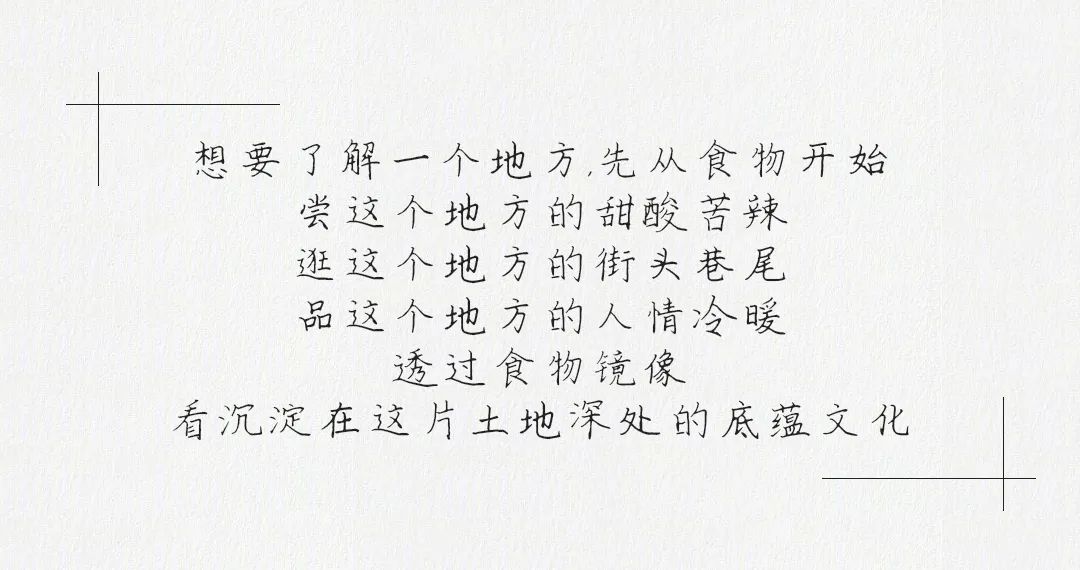 想要了解一个地方,先从食物开始
尝这个地方的甜酸苦辣
逛这个地方的街头巷尾
品这个地方的人情冷暖
透过食物镜像
看沉淀在这片土地深处的底蕴文化